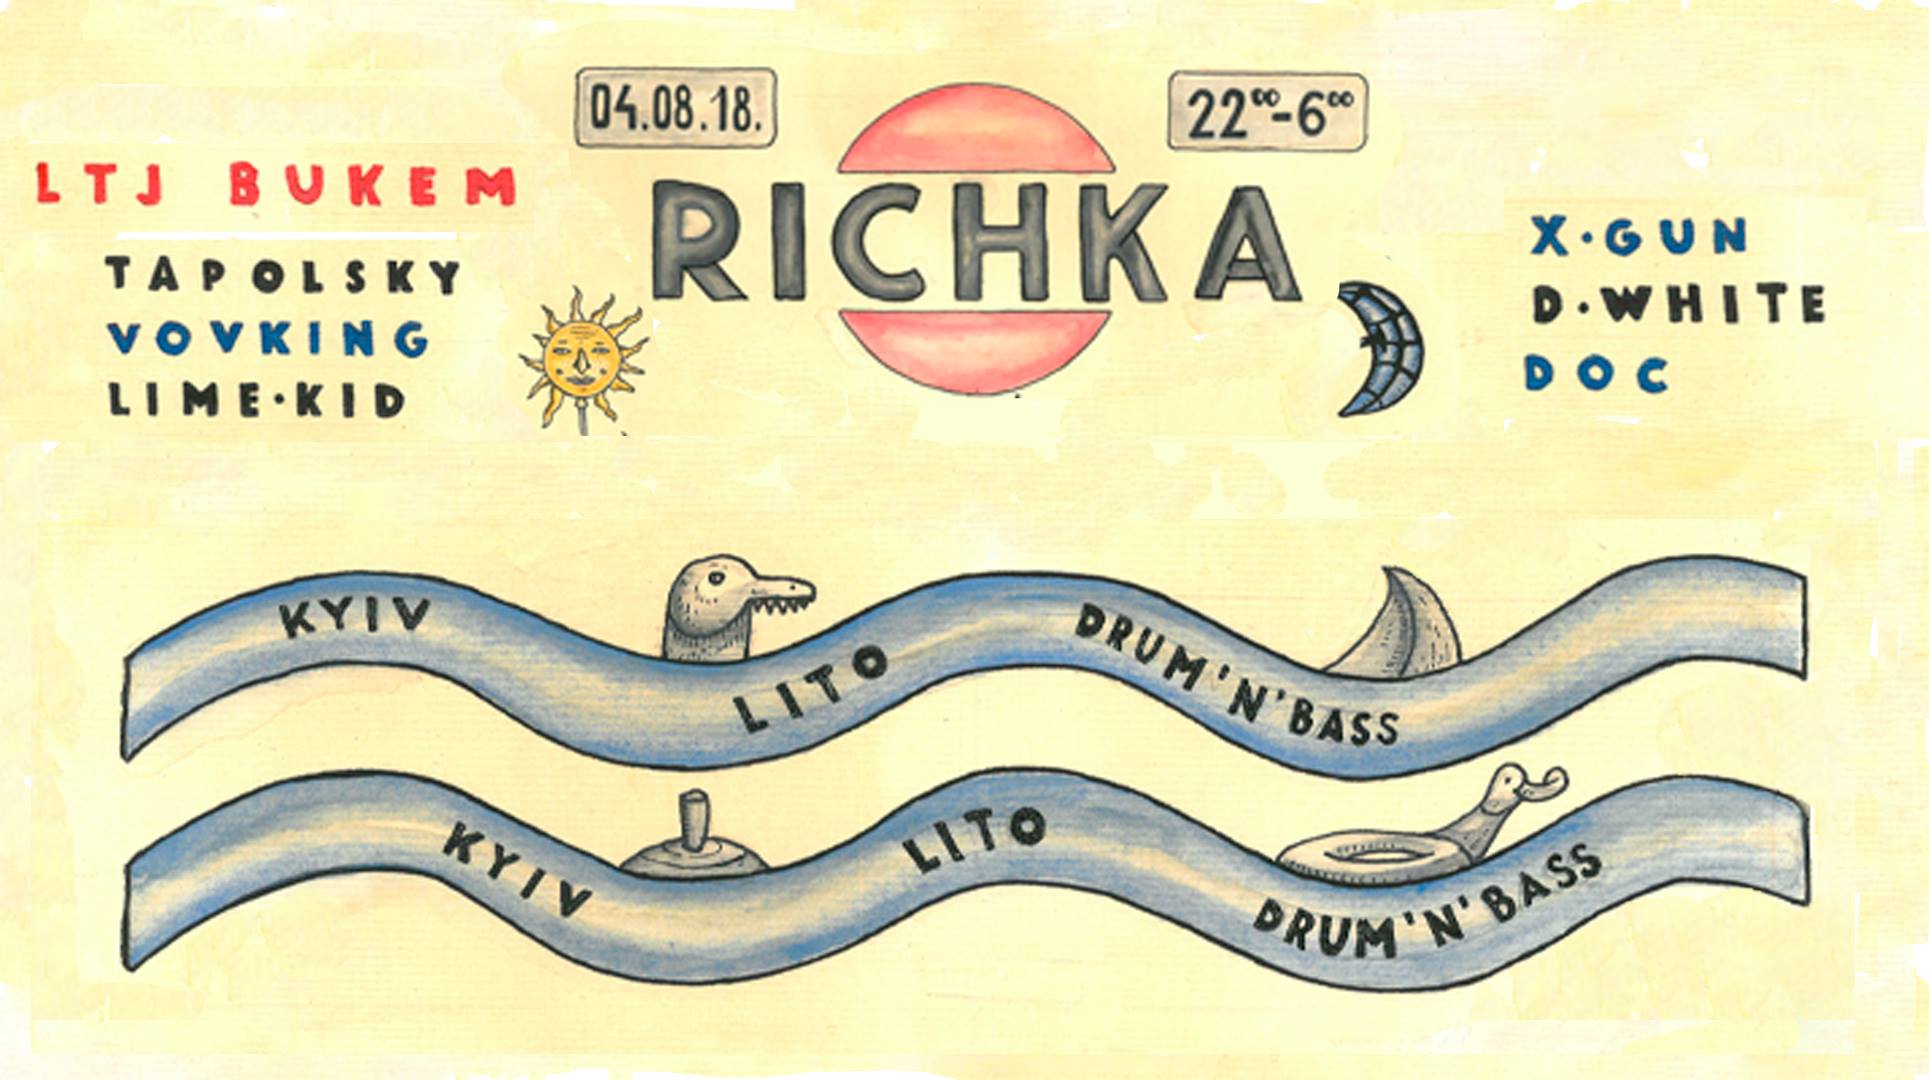 04.08.18.
22⁰⁰-6⁰⁰
RICHKA
LTJ BUKEM
TAPOLSKY
VOVKING
LIME·KID
X·GUN
D·WHITE
DOC
KYIV
LITO
DRUM'N'BASS
KYIV
LITO
DRUM'N'BASS